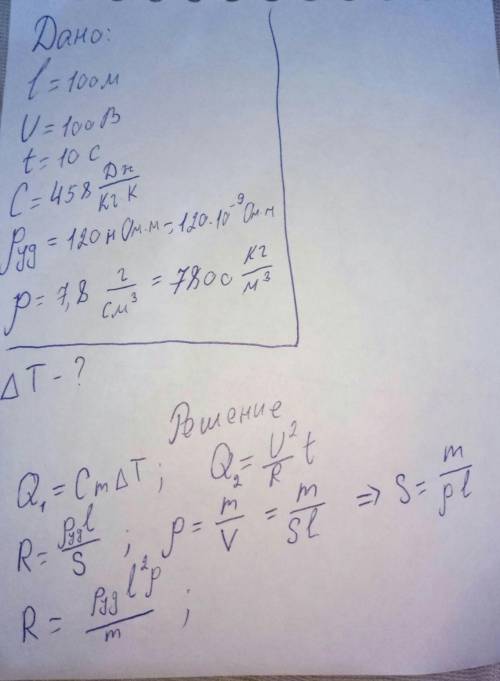 Дано:
l = 100м
U = 100В
t = 10 с
C = 458 Дж/кг К
ρуд = 120 н Ом·м = 120·10⁻⁹ Ом·м
ρ = 7,8 г/см³ = 7800 кг/м³
ΔT - ?
Решение
Q₁ = C m ΔT ; Q₂ = U²/R t
R = ρуд l/S ; ρ = m/V = m/Sl ⇒ S = m/ρl
R = ρуд l²ρ/m ;